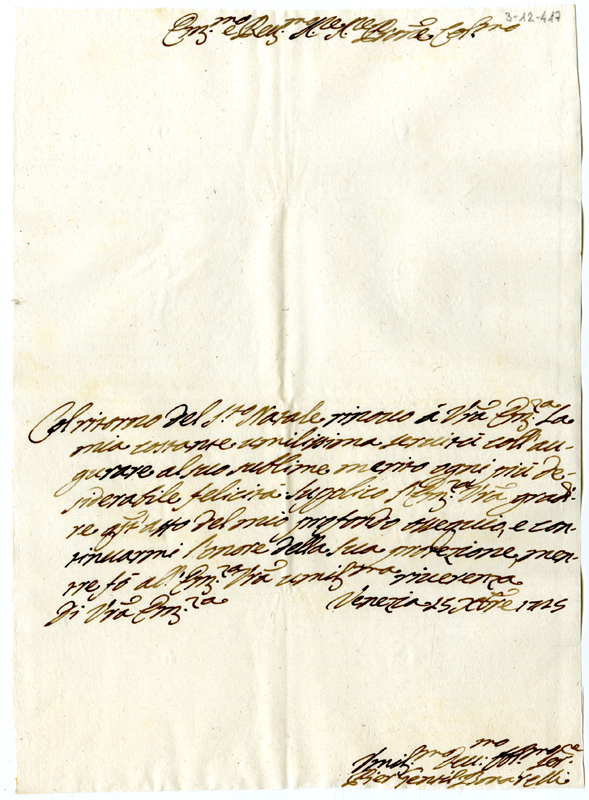 3-12-417
Em.mo e Rev.mo Sig.re Sig.re P'rone Col.mo
Col ritorno del S.to Natale rinovo à Vrã Em.za la
mia costante umilissima servitù coll'au-
gurare al suo sublime merito ogni più de-
siderabile felicità. Supplico l'Em.za Vrã gradi-
re q.sto atto del mio profondo ossequio, e con-
tinuarmi l'onore della sua protezione, men-
tre fò all'Em.za Vrã umiliss.ma riverenza
Di Vrã Em.za Venezia 15 Xbre 1725
Umiliss.mo Dev.mo Ser.
Pier Gentil Bonarelli